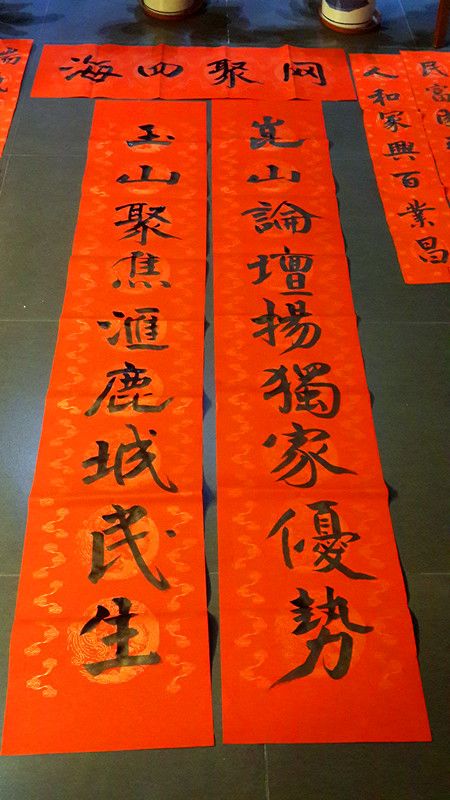 网聚四海
崑山論壇揚獨家優勢
玉山聚焦滙鹿城民生
民富
人和家興百業昌